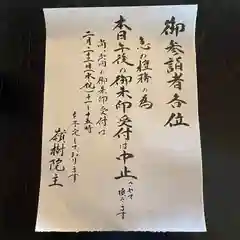 御参詣者各位
急の役務の為
本日午後の御朱印受付は中止
させて頂きます
尚次回の御朱印受付は
二月二十三日(水、祝)十一〜十五時
を予定しております
嶺樹院主